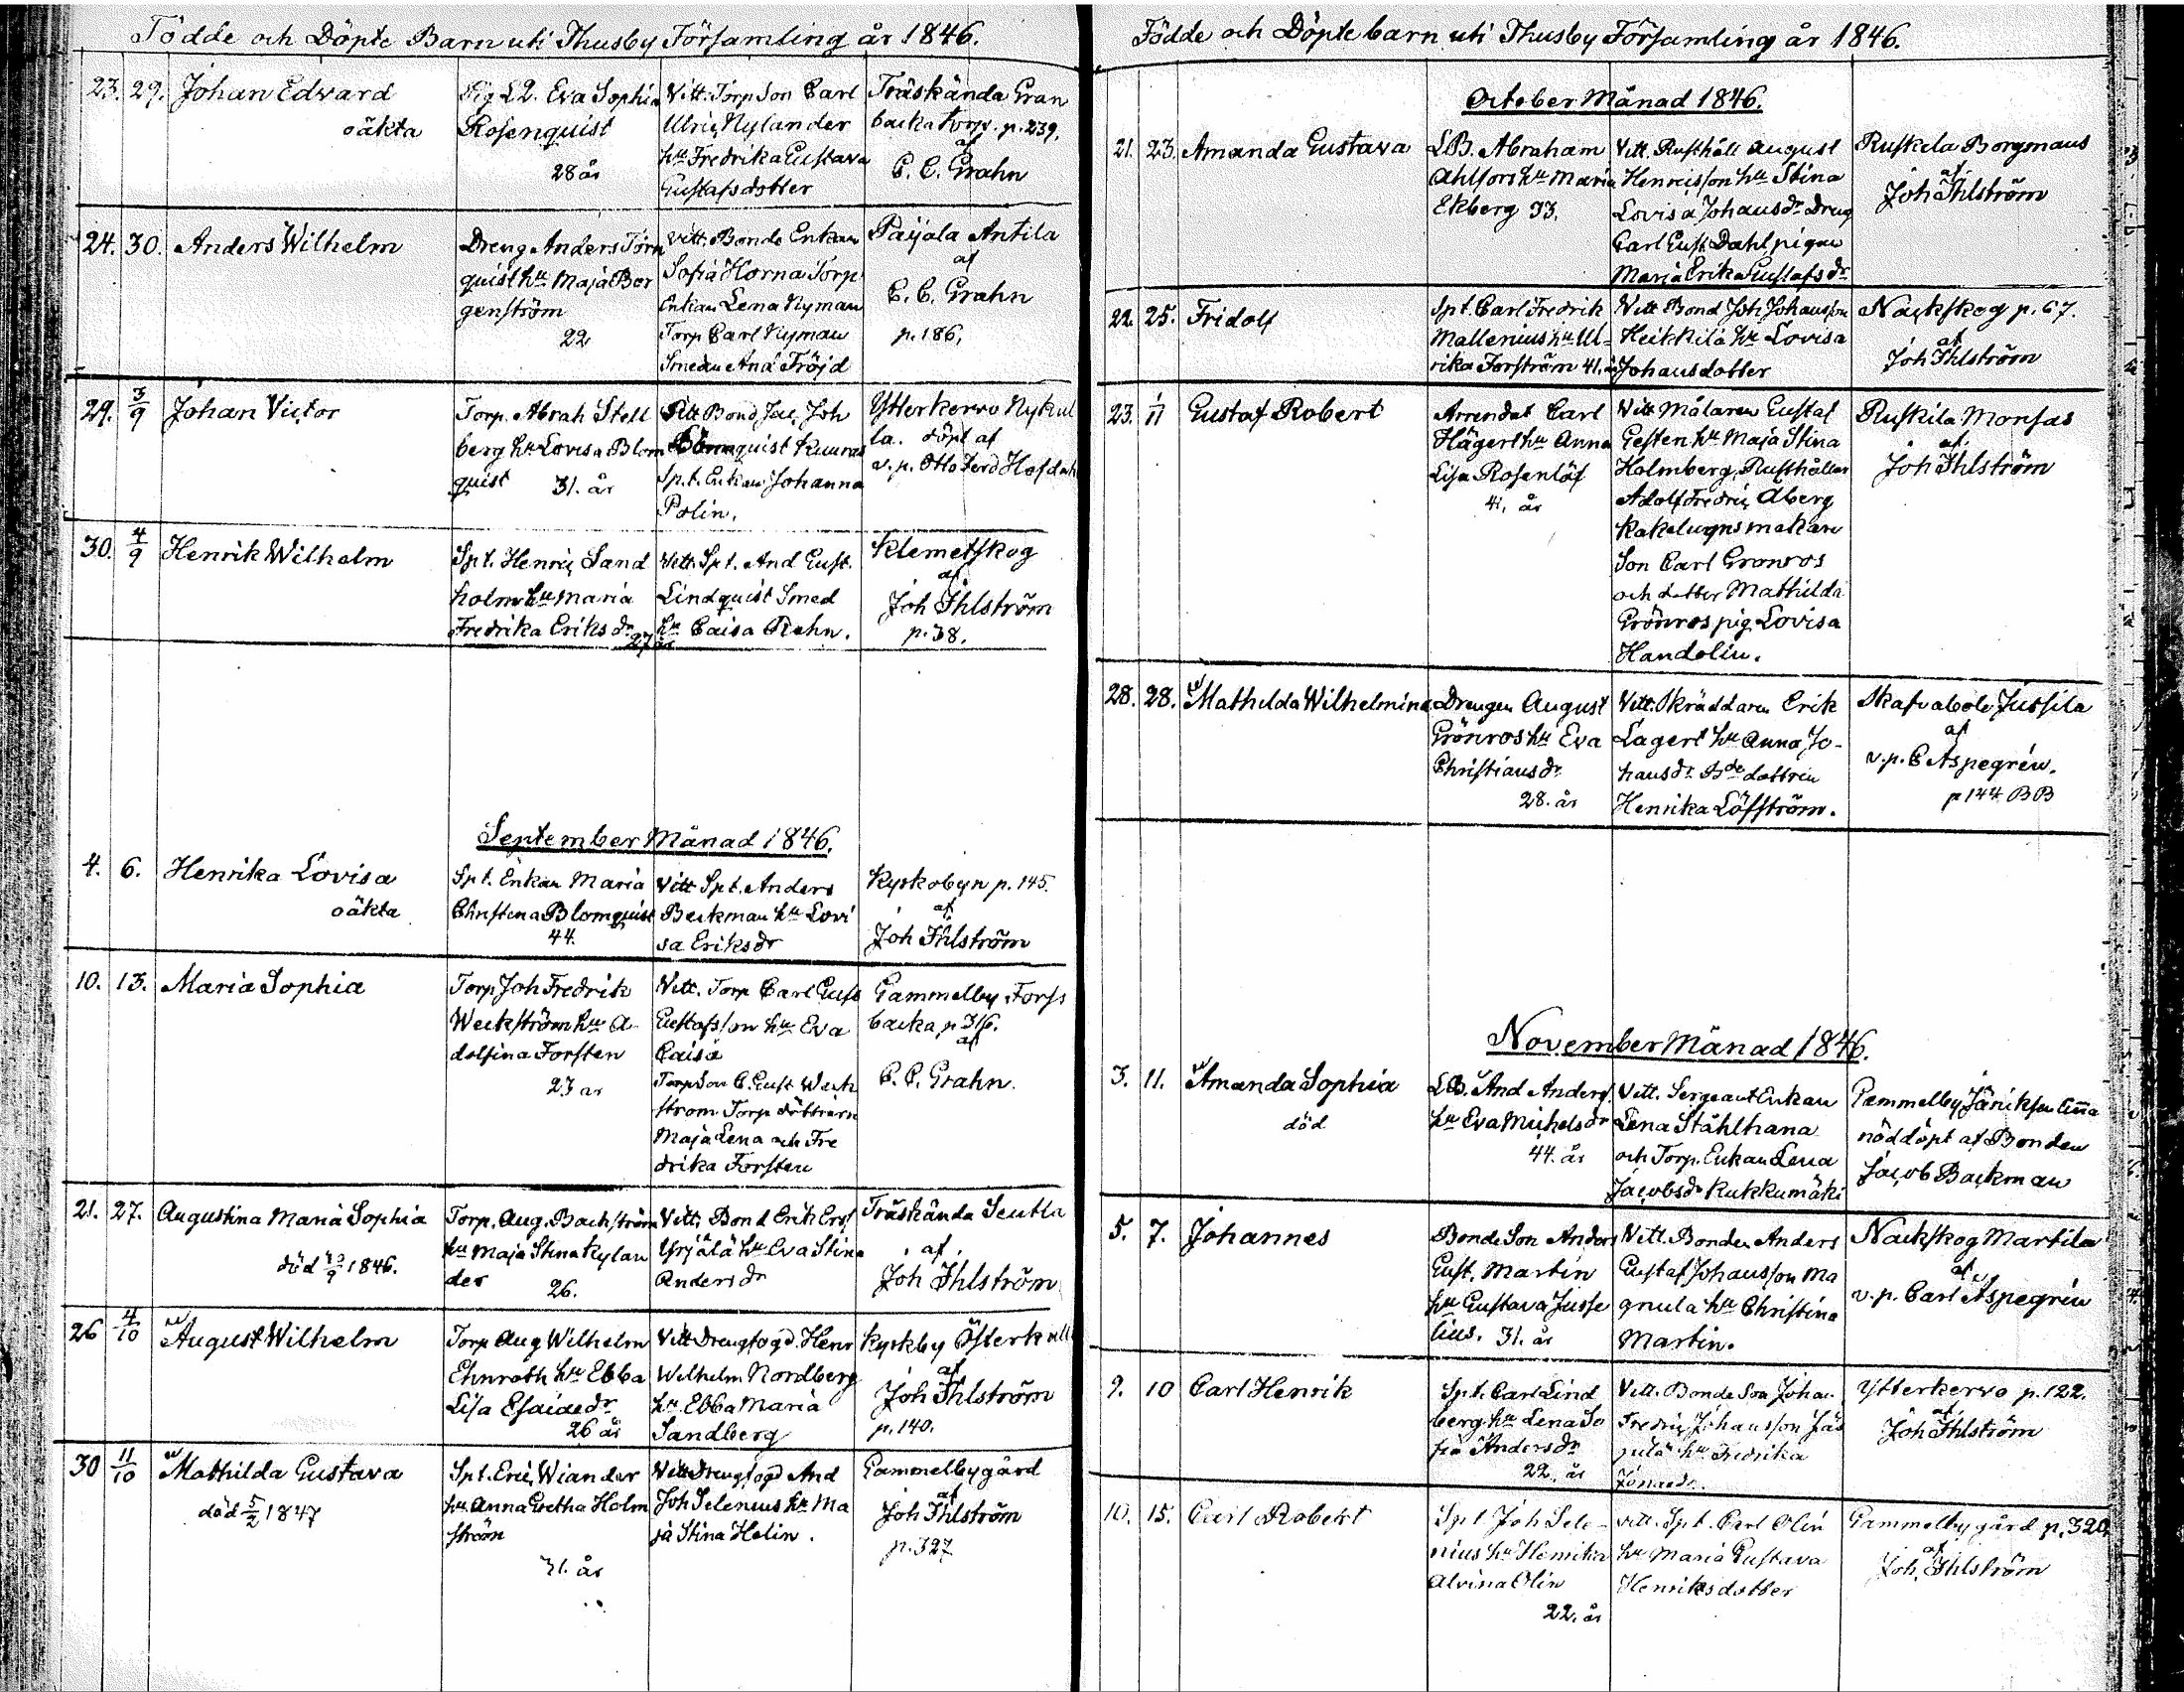 Födde och Döpte Barn uti Thusby Församling år 1846.
23. 29. Johan Edvard
oäkta
Pig L2. Eva Sophia
Rosenquist
28 år
Vitt. Torp Son Carl
Ulric Nylander
hu Fredrika Gustava
Gustafsdotter
Träskända Gran
backa torp. p. 239.
af
C. C. Grahn
24. 30. Anders Wilhelm
Dreng Anders Törn
quist hu Maja Bor
genström
22
Vitt. Bonde Enkan
Sofia Horna Torp
Enkan Lena Nyman
Torp Carl Nyman
Smeden And Fröjd
Paijala Antila
af
C. C. Grahn
p. 186.
29. 3/9 Johan Victor
Torp. Abrah Stell
berg hu Lovisa Blom
quist 31. år
Vitt Bond Jac. Joh
quist Kuuras
Spt. Enkan Johanna
Polin.
Ytterkervo Nykul
la. döpt af
v. p. Otto Ferd Hofdah
30. 4/9 Henrik Wilhelm
Spt. Henric Sand
holm hu Maria
Fredrika Eriks dr
27 år
Vitt. Spt. And Gust.
Lindquist Smed
hu Caisa Rehn.
Klemetskog
af
Joh Ihlström
p. 38.
September Månad 1846.
4. 6. Henrika Lovisa
oäkta
Spt. Enkan Maria
Christina Blomquist
44.
Vitt Spt. Anders
Beckman hu Lovi
sa Eriksdr
Kyrkobyn p. 145.
af
Joh Ihlström
10. 13. Maria Sophia
Torp Joh Fredrik
Weckström hu A-
dolfina Forsten
23 år
Vitt. Torp Carl Gust
Gustafsson hu Eva
Caisa
Torp Son C. Gust Weck
ström Torp döttrarne
Maja Lena och Fre
drika Forsten
Gammelby Forss
backa p 316.
af
C. C. Grahn.
21. 27. Augustina Maria Sophia
död /9 1846.
Torp. Aug. Backström
hu Maja Stina Rylan
der
26.
Vitt. Bond Erik Ers
Yrjälä hu Eva Stina
Anders dr
Träskända Seutla
af
Joh Ihlström
26 4/10 August Wilhelm
Torp Aug Wilhelm
Ehnroth hu Ebba
Lisa Esaiædr
26 år
Vitt Drengfogd. Henr
Wilhelm Nordberg
hu Ebba Maria
Sandberg
Kyrkby Österkull
af
Joh Ihlström
p. 140.
30 11/10 Mathilda Gustava
död 5/2 1847
Spt. Eric Wiander
hu Anna Gretha Holm
ström
31. år
Vitt Drengfogd And
Joh Selenius hu Ma
ja Stina Helin.
Gammelbygård
af
Joh Ihlström
p. 327
Födde och Döpte barn uti Thusby Församling år 1846.
October Månad 1846.
21. 23. Amanda Gustava
LB. Abraham
Ahlfors hu Maria
Ekberg 33.
Vitt. Rusthåll August
Henricsson hu Stina
Lovisa Johansdr Dreng
Carl Gust Dahl pigan
Maria Erika Gustafs dr
Ruskela Borgmans
af
Joh Ihlström
22. 25. Fridolf
Spt. Carl Fredrik
Mallenius hu Ul-
rika Forström 41. år
Vitt Bond Joh Johansson
Heikkilä hu Lovisa
Johansdotter
Nackskog p. 67.
af
Joh Ihlström
23. 1/11 Gustaf Robert
Arrendat Carl
Hägert hu Anna
Lisa Rosenlöf
41. år
Vitt Målaren Gustaf
Gesten hu Maja Stina
Holmberg, Rusthållar
Adolf Fredric Aberg
Kakelugnsmakare
Son Carl Grönros
och dotter Mathilda
Grönros pig. Lovisa
Handolin.
Ruskila Monsas
af
Joh Ihlström
28. 28. Mathilda Wilhelmina
Drengen August
Grönros hu Eva
Christiansdr
28. år
Vitt. Skräddaren Erik
Lagert hu Anna Jo-
hansdr. Bde dottren
Henrika Löfström.
Skafvaböle Jussila
af
v. p. C Aspegrén.
p 144 BB
November Månad 1846.
3. 11. Amanda Sophia
död
LB. And Anders
hu Eva Michelsdr
44. år
Vitt. Sergeant Enkan
Lena Stålhana
och Torp. Enkan Lena
Jacobsdr Kukkumäki
Gammelby
nöddöpt af Bonden
Jacob Backman
5. 7. Johannes
Bonde Son Anders
Gust. Martin
hu Gustava Jusse
lius. 31. år
Vitt. Bonden Anders
Gustaf Johansson Ma
gnula hu Christina
Martin.
Nackskog Martila
af
v. p. Carl Aspegrén
9. 10 Carl Henrik
Spt. Carl Lind
berg hu Lena So
fia Andersdr
22. år
Vitt. Bonde Son Johan
Fredric Johansson Jäs
pilä hu Fredrika
Jonædr.
Ytterkervo p. 122.
af
Joh Ihlström
10. 15. Carl Robert
Spt Joh Sele-
nius hu Henrika
Alvina Olin
22. år
Vitt. Spt. Carl Olin
hu Maria Gustava
Henriksdotter
Gammelby gård p. 320.
af
Joh. Ihlström